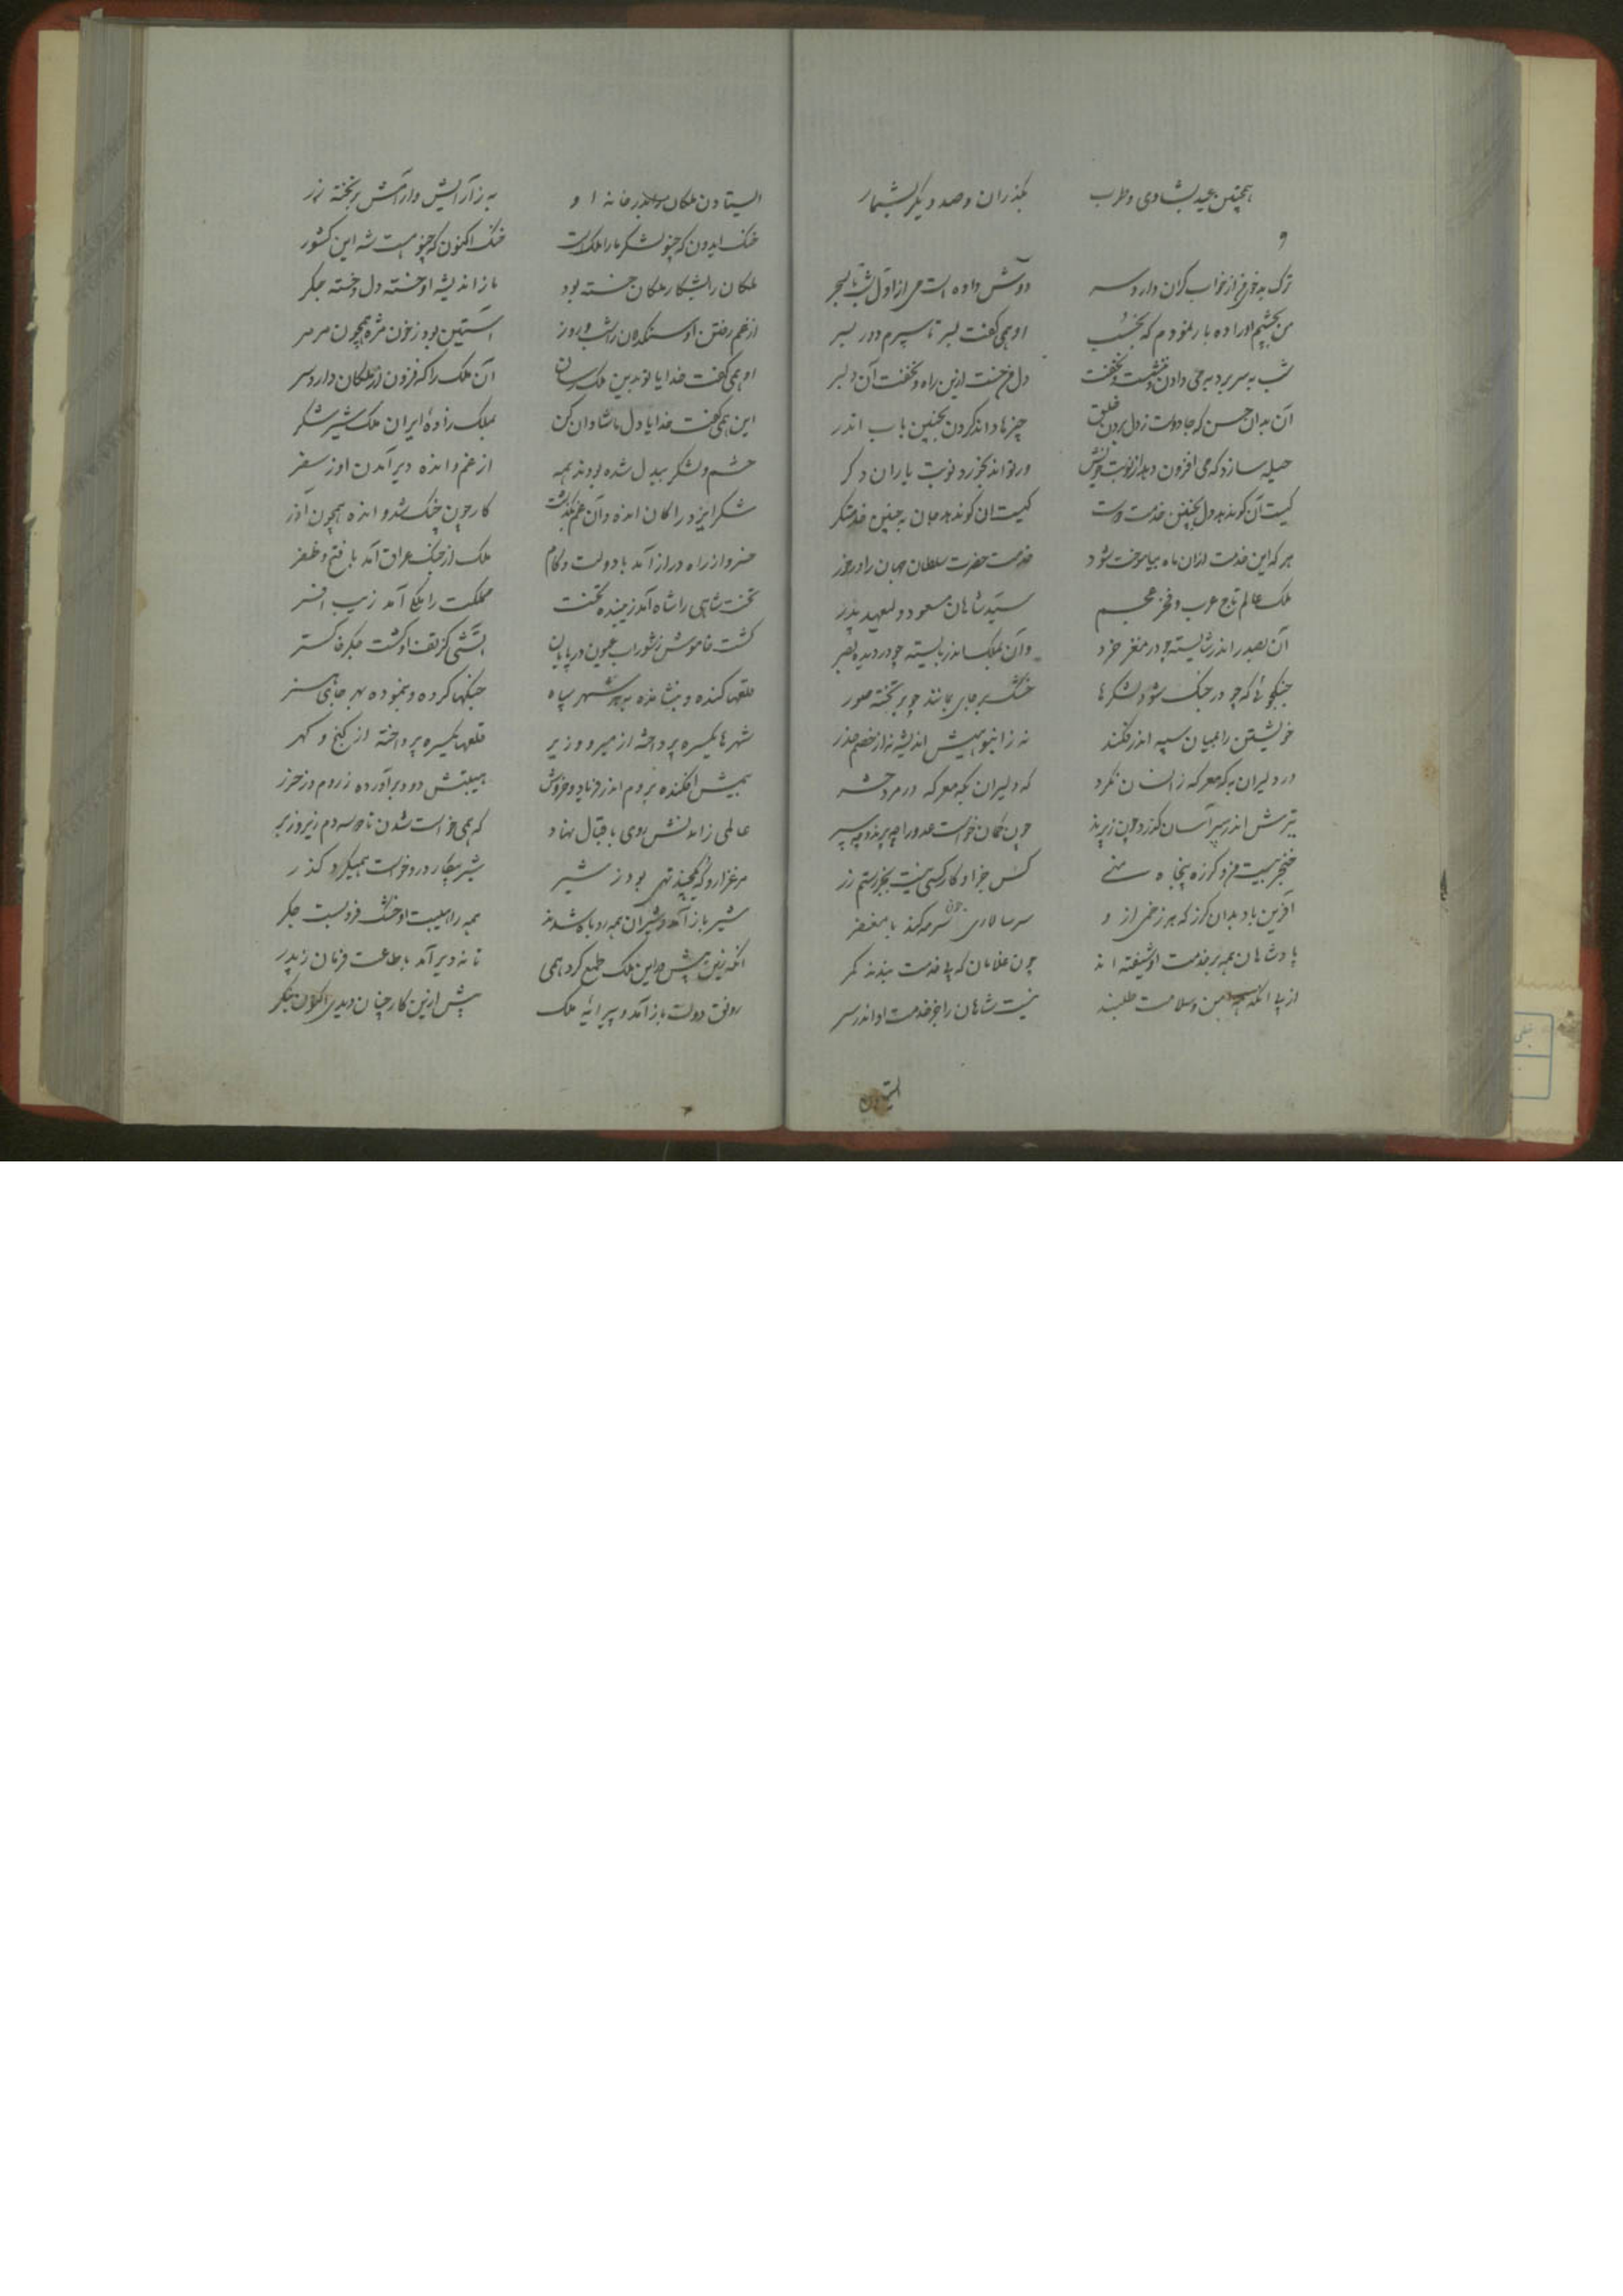 همچنین عید بشادی و طرب بگذران و صد دیگر بشمار
و
ترک مه خرخ از خواب گران دارد سر دوش داده است می از اول شب تا بسحر
من بچشم او را ده بار نمودم که بخسب او همی گفت بسر تا سپرم دور بسر
شب بسر برد به می دادن و ننشست و نخفت دل من خست ازین راه و نخفت آن دلبر
آن بدان حسن که جادوست ز دل بردن خلق چیزها داند کردن بچنین باب اندر
حیله سازد که می افزون دهد از نوبت خویش ور تواند بخرد نوبت یاران دگر
کیست آن کو ندهد دل بچنین خدمت دوست کیست آن کو ندهد جان به چنین خدمتگر
هر که این خدمت ازان ماه بیاموخت شود خدمت حضرت سلطان جهان را درخور
ملک عالم تاج عرب و فخر عجم سید شاهان مسعود ولیعهد پدر
آن بصدر اندر شایسته چو در مغز خرد وآن بملک اندر بایسته چو در دیده بصر
جنگجوئی که چو در جنگ شود لشکرها خشک بر جای بمانند چو بر تخته صور
خویشتن را بمیان سپه اندر فکند نه ز انبوهیش اندیشه نه از خصم حذر
در دلیران بگه معرکه زانسان نگرد که دلیران بگه معرکه در مرد حشر
تیرش اندر سپر آسان گذرد چون ز پرند چون کمان خواست عدو را چه پرند و چه سپر
خنجر بیست من و گرز پنجاه منی کس جز او کار کسی نیست بجز رستم زر
آفرین باد بدان گرز که هر زخمی ازو سر سالاری چون سرمه کند با مغفر
پادشاهان همه بر خدمت او شیفته اند چون غلامان که پی خدمت بندند کمر
از پی آنکه همی امن و سلامت طلبند نیست شاهان را جز خدمت او اندر سر
ایستادن
ایستادن ملکان را بدر خانه او به ز آرایش و آرامش بر تخته زر
خنک ایدون که چنو لشکر ما را ملکست خنک اکنون که چنو هست شه این کشور
ملکان را بشکار ملکان خسته بود باز اندیشه او خسته دل و خسته جگر
از غم رفتن او سنگدلان را شب و روز آستین بود ز خون مژه همچون مرمر
او همی گفت خدایا تو بدین ملک رسان آن ملک را که فزون از ملکان دارد سر
این همی گفت خدایا دل ما شادان کن بملک زاده ایران ملک شیر شکر
حشم و لشکر بیدل شده بودند همه از غم و انده دیر آمدن او ز سفر
شکر ایزد را کان انده و آن غم بگذشت کار چون چنگ شد و انده همچون آذر
خسرو از راه دراز آمد با دولت و کام ملک از جنگ عراق آمد با فتح و ظفر
تخت شاهی را شاه آمد زیبنده تخت مملکت را ملک آمد زیب افسر
گشت خاموش ز شوراب عیون دریا آتشی کز تف او گشت جگر خاکستر
قلعها کنده و بنشانده به هر شهر سپاه جنگها کرده و بنموده بهر جای هنر
شهرها یکسره پرداخته از میر و وزیر قلعها یکسره پرداخته از گنج و گهر
بیمش افکنده بروم اندر فریاد و خروش هیبتش دود برآورده ز روم و ز خزر
عالمی زآمدنش روی باقبال نهاد که همی خواست شدن تا دم زیر و زبر
مرغزاری که بچند تهی بود ز شیر شیر بیگار درو خواست همیکرد گذر
شیر باز آمد و شیران همه روباه شدند همه را هیبت او خشک فرو بست جگر
آنکه زین پیش درین ملک طمع کرد همی تا نه دیر آمد بطاعت فرمان ز پدر
رونق دولت باز آمد و پیرایه ملک پیش ازین کار چنان دیدی اکنون بنگر